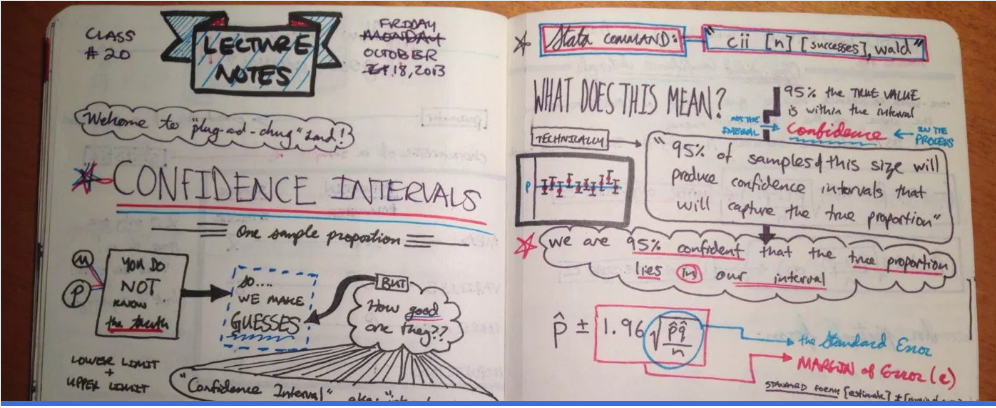 CLASS
# 20
LECTURE
NOTES
FRIDAY
MONDAY
OCTOBER
18, 2013
Welcome to "plug-and-chug" land!
CONFIDENCE INTERVALS
One sample proportion
μ
p
YOU DO
NOT
KNOW
the truth
SO....
WE MAKE
GUESSES
BUT
How good
are they??
LOWER LIMIT
+
UPPER LIMIT
"Confidence Interval" aka
Stata COMMAND:
"cii [n] [successes], wald"
WHAT DOES THIS MEAN?
95% the TRUE VALUE
is within the interval
NOT THE
INTERVAL
Confidence
IN THE
PROCESS
TECHNICALLY
P
"95% of samples of this size will
produce confidence intervals that
will capture the true proportion"
we are 95% confident that the true proportion
lies in our interval
p̂ ± 1.96 √(p̂q̂/n)
the Standard Error
MARGIN of Error (e)
STANDARD FORM: [estimate] ±